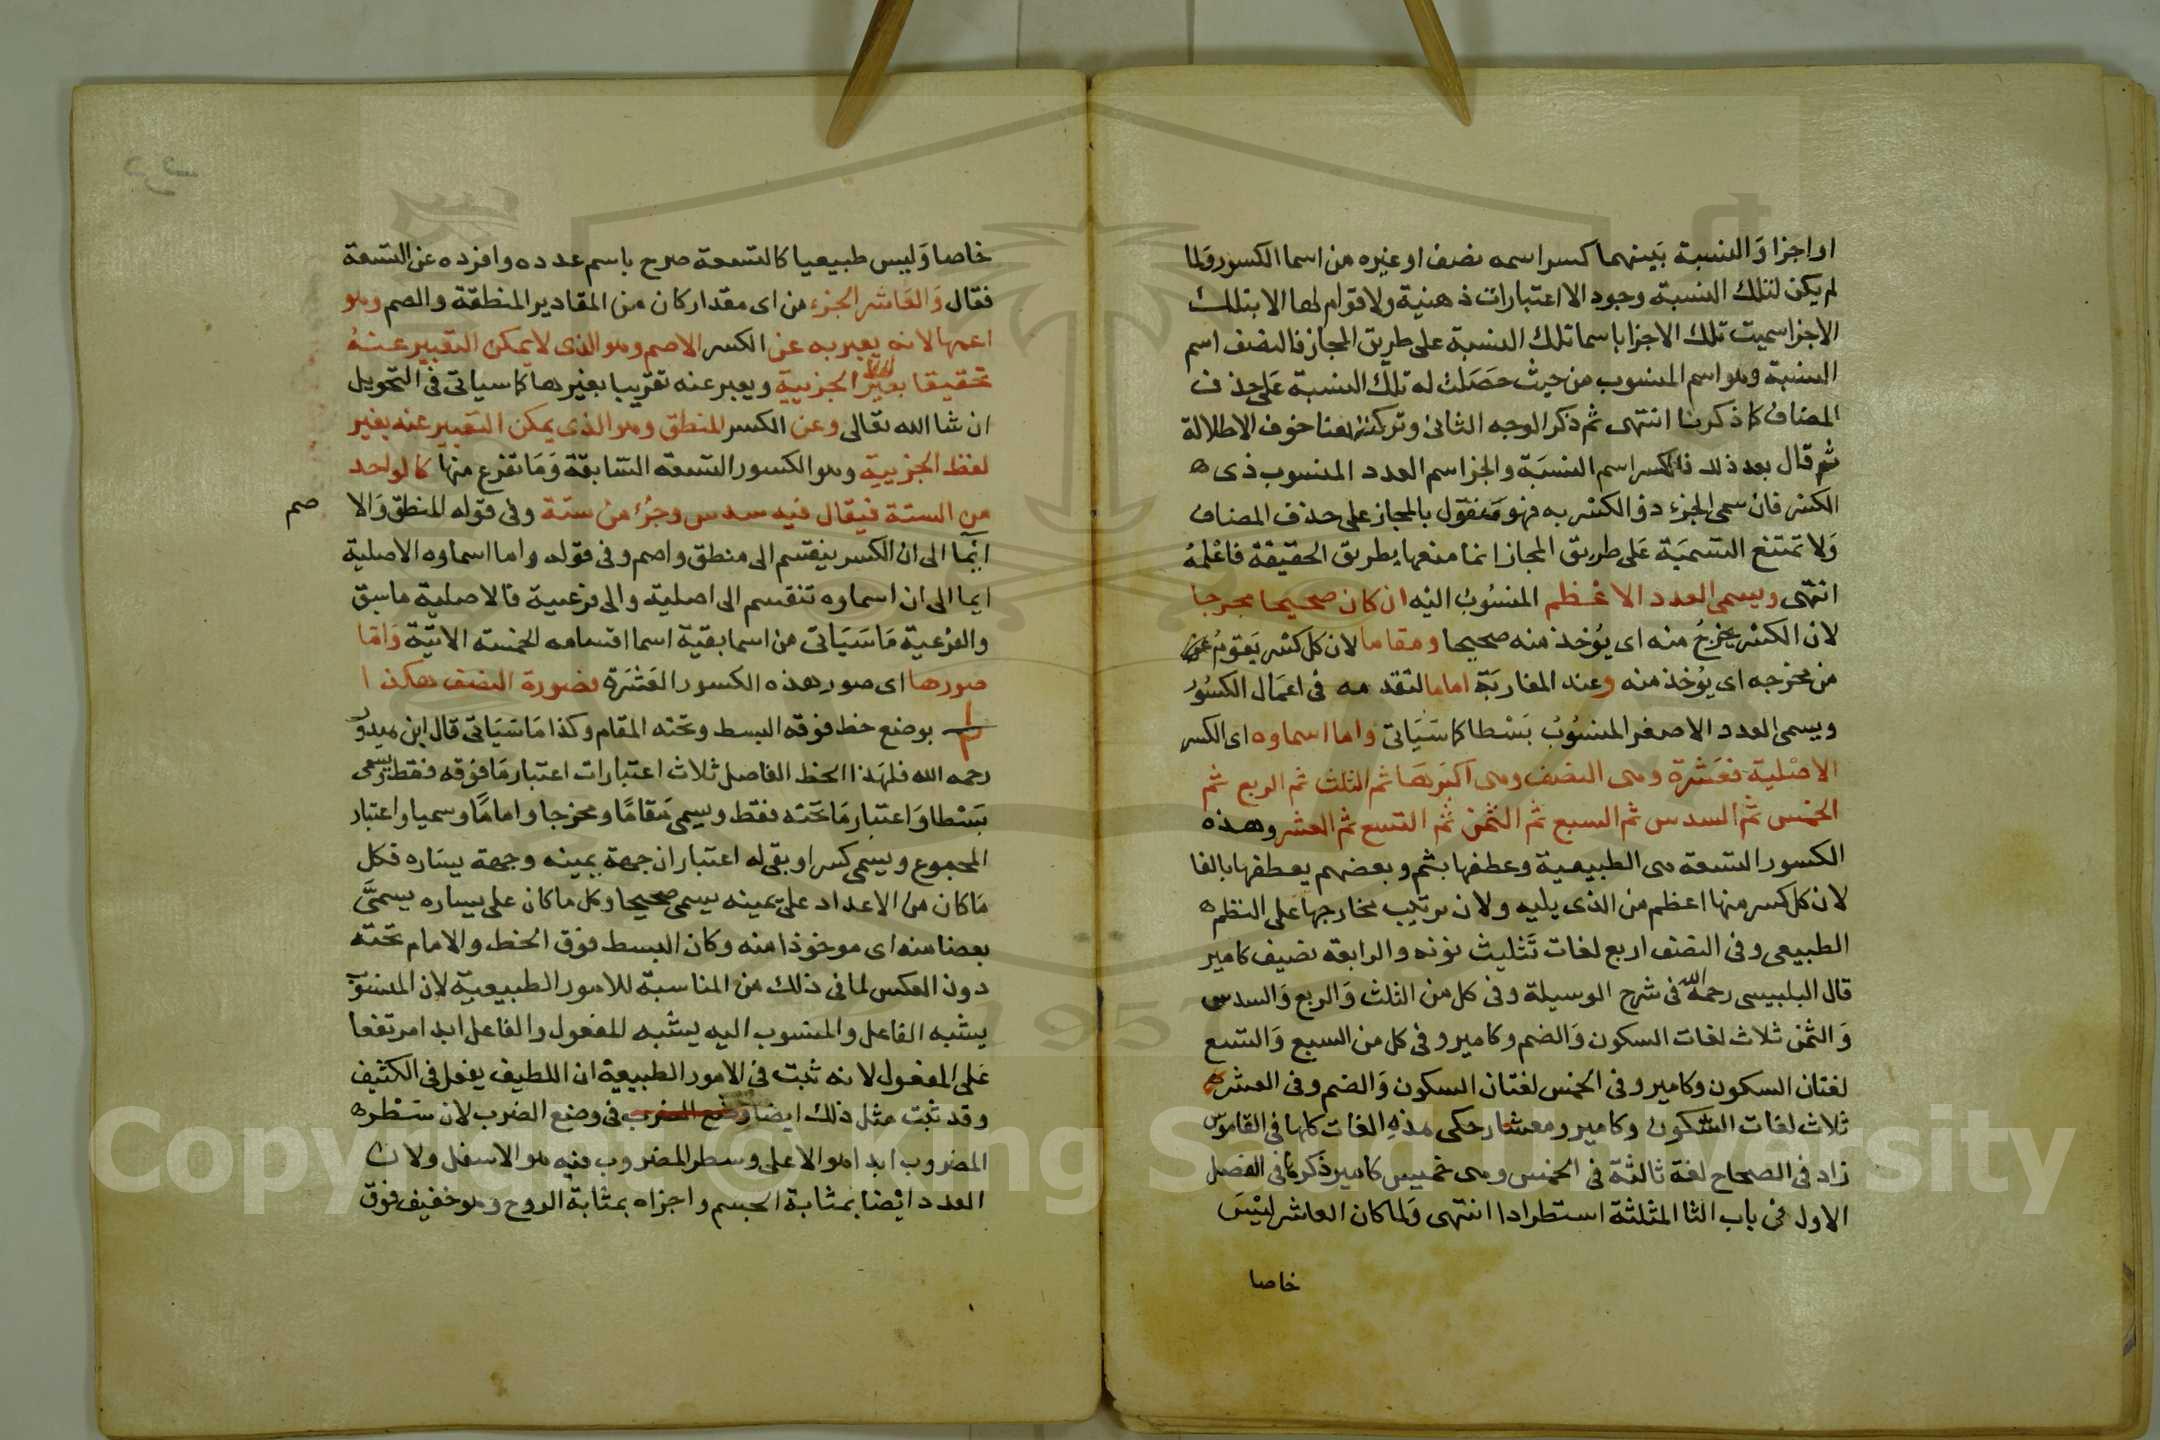 او اجزا وَالنسبة بَينهما كسر اسمه نصف او غيره من اسما الكسور ولما
لم يكن لتلك النسبة وجود الا اعتبارات ذهنية ولا قوام لها الا بتلك
الاجزا سميت تلك الاجزا باسما تلك النسبة على طريق المجاز فالنصف اسم
النسبة وهو اسم المنسوب من حيث حَصَلت له تلك النسبة عَلى حذف
المضاف كما ذكرنا انتهى ثم ذكر الوجه الثانى وتركته هنا خوف الاطلالة
ثم قال بعد ذلك فالكسر اسم النسبَة والجز اسم العدد المنسوب ذى ه
الكسر فان سمى الجزء ذو الكسر به فهو مَنقول بالمجاز على حذف المضاف
وَلا تمتنع التسميَة عَلى طريق المجاز انما منعها بطريق الحقيقة فاعْلمهُ
انتهى ويسمى العدد الاعْظم المنسُوبُ اليْه ان كان صحيحا مخرجا
لان الكسْر يخرجُ منه اى يُوخذ منه صحيحا ومقاما لان كل كسْر يَقومُ عن
من مخرجه اى يُوخذ منه وعند المغاربَة اماما لتقدمه فى اعمَال الكسُور
ويسمى العدد الاصغر المنسُوبُ بَسْطا كما سَيَاتى واما اسماوه اى الكسر
الاصْلية فعَشرة وهى النصف وهى اكبَرهَا ثم الثلث ثم الربع ثم
الخمس ثم السدس ثم السبع ثم الثمن ثم التسع ثم العشر وهذه
الكسور التسعة هى الطبيعية وعطفها بثم وبعضهم يعطفها بالفا
لان كل كسر منها اعظم من الذى يليه ولان ترتيب مخارجها على النظم ه
الطبيعى وفى النصف اربع لغات تَثليث نونه والرابعة نصيف كامير
قال البلبيسى رحمه الله فى شرح الوسيلة وفى كل من الثلث وَالربع وَالسدس
وَالثمن ثلاث لغات السكون وَالضم وكامير وفى كل من السبع وَالتسع
لغتان السكون وكامير وفى الخمس لغتان السكون وَالضم وفى العشر ه
ثلاث لغات السكون وكامير ومعشار حكى هذهِ الغات كلها فى القاموس
زاد فى الصحاح لغة ثالثة فى الخمس وهى خميس كامير ذكرها فى الفصل
الاول من باب الثا المثلثة استطرادا انتهى وَلما كان العاشر ليْسَ
خاصا
خاصا وَليس طبيعيا كالتسعة صرح باسم عدده وافرده عن التسعة
فقال وَالعَاشر الجزء من اى مقدار كان من المقادير المنطقة والصم وهو
اعمها لانه يعبر به عن الكسر الاصم وهو الذى لا يمكن التعبير عنهُ
تحقيقا بغير لفظ الجزيية ويعبر عنه تقريبا بغيرها كما سياتى فى التحويل
ان شا الله تعالى وعن الكسر المنطق وهو الذى يمكن التعبير عنه بغير
لفظ الجزيية وهو الكسور التسعة السَّابقة وَمَا تفرع منها كالواحد
من الستة فيقال فيه سدس وجزْء من ستة وفى قوله المنطق وَالا
صم
ايما الى ان الكسر ينقسم الى منطق واصم وفى قوله واما اسماوه الاصلية
ايما الى ان اسماوه تنقسم الى اصلية والى فرعية فالاصلية ما سبق
والفرعية مَا سَيَاتى من اسما بقية اسما اقسامه الخمسة الاتيَة وَامّا
صورها اى صور هذه الكسور العَشرَة فصُورة النصف هكذا
١
٢
بوضع خط فوقه البسط وتحته المقام وكذا مَا سَيَاتى قال ابن ميدور
رحمه الله فلهَذا الخط الفاصل ثلاث اعتبارات اعتبار مَا فوقه فقط ويسمى
بَسْطا وَاعتبار مَا تحته فقط ويسمى مَقامًا ومخرجا وامامًا وسميا واعتبار
المجموع ويسمى كسرا وبقى له اعتباران جهة يمينه وجهة يسَاره فكل
مَا كان من الاعداد على يَمينه يسمى صحيحا وكل ما كان على يساره يسمىَّ
بعضا منه اى موخوذا منه وكان البسط فوق الخط والامام تحته
دون العكس لما فى ذلك من المناسبة للامور الطبيعية لان المنسوَب
يشبه الفاعل والمنسوب اليه يشبه للمفعول والفاعل ابدا مرتفعا
عَلى المفعول لانه ثبت فى الامور الطبيعية ان اللطيف يفعل فى الكثيف
وقد ثبت مثل ذلك ايضا وضع الضرب فى وضع الضرب لان سَطر ه
المضروب ابدا هو الاعلى وسطر المضروب فيه هو الاسفل ولان
العدد ايْضا بمثابة الجسم واجزاه بمثابة الروح وهو خفيف فوق
Copyright © King Saud University
1957